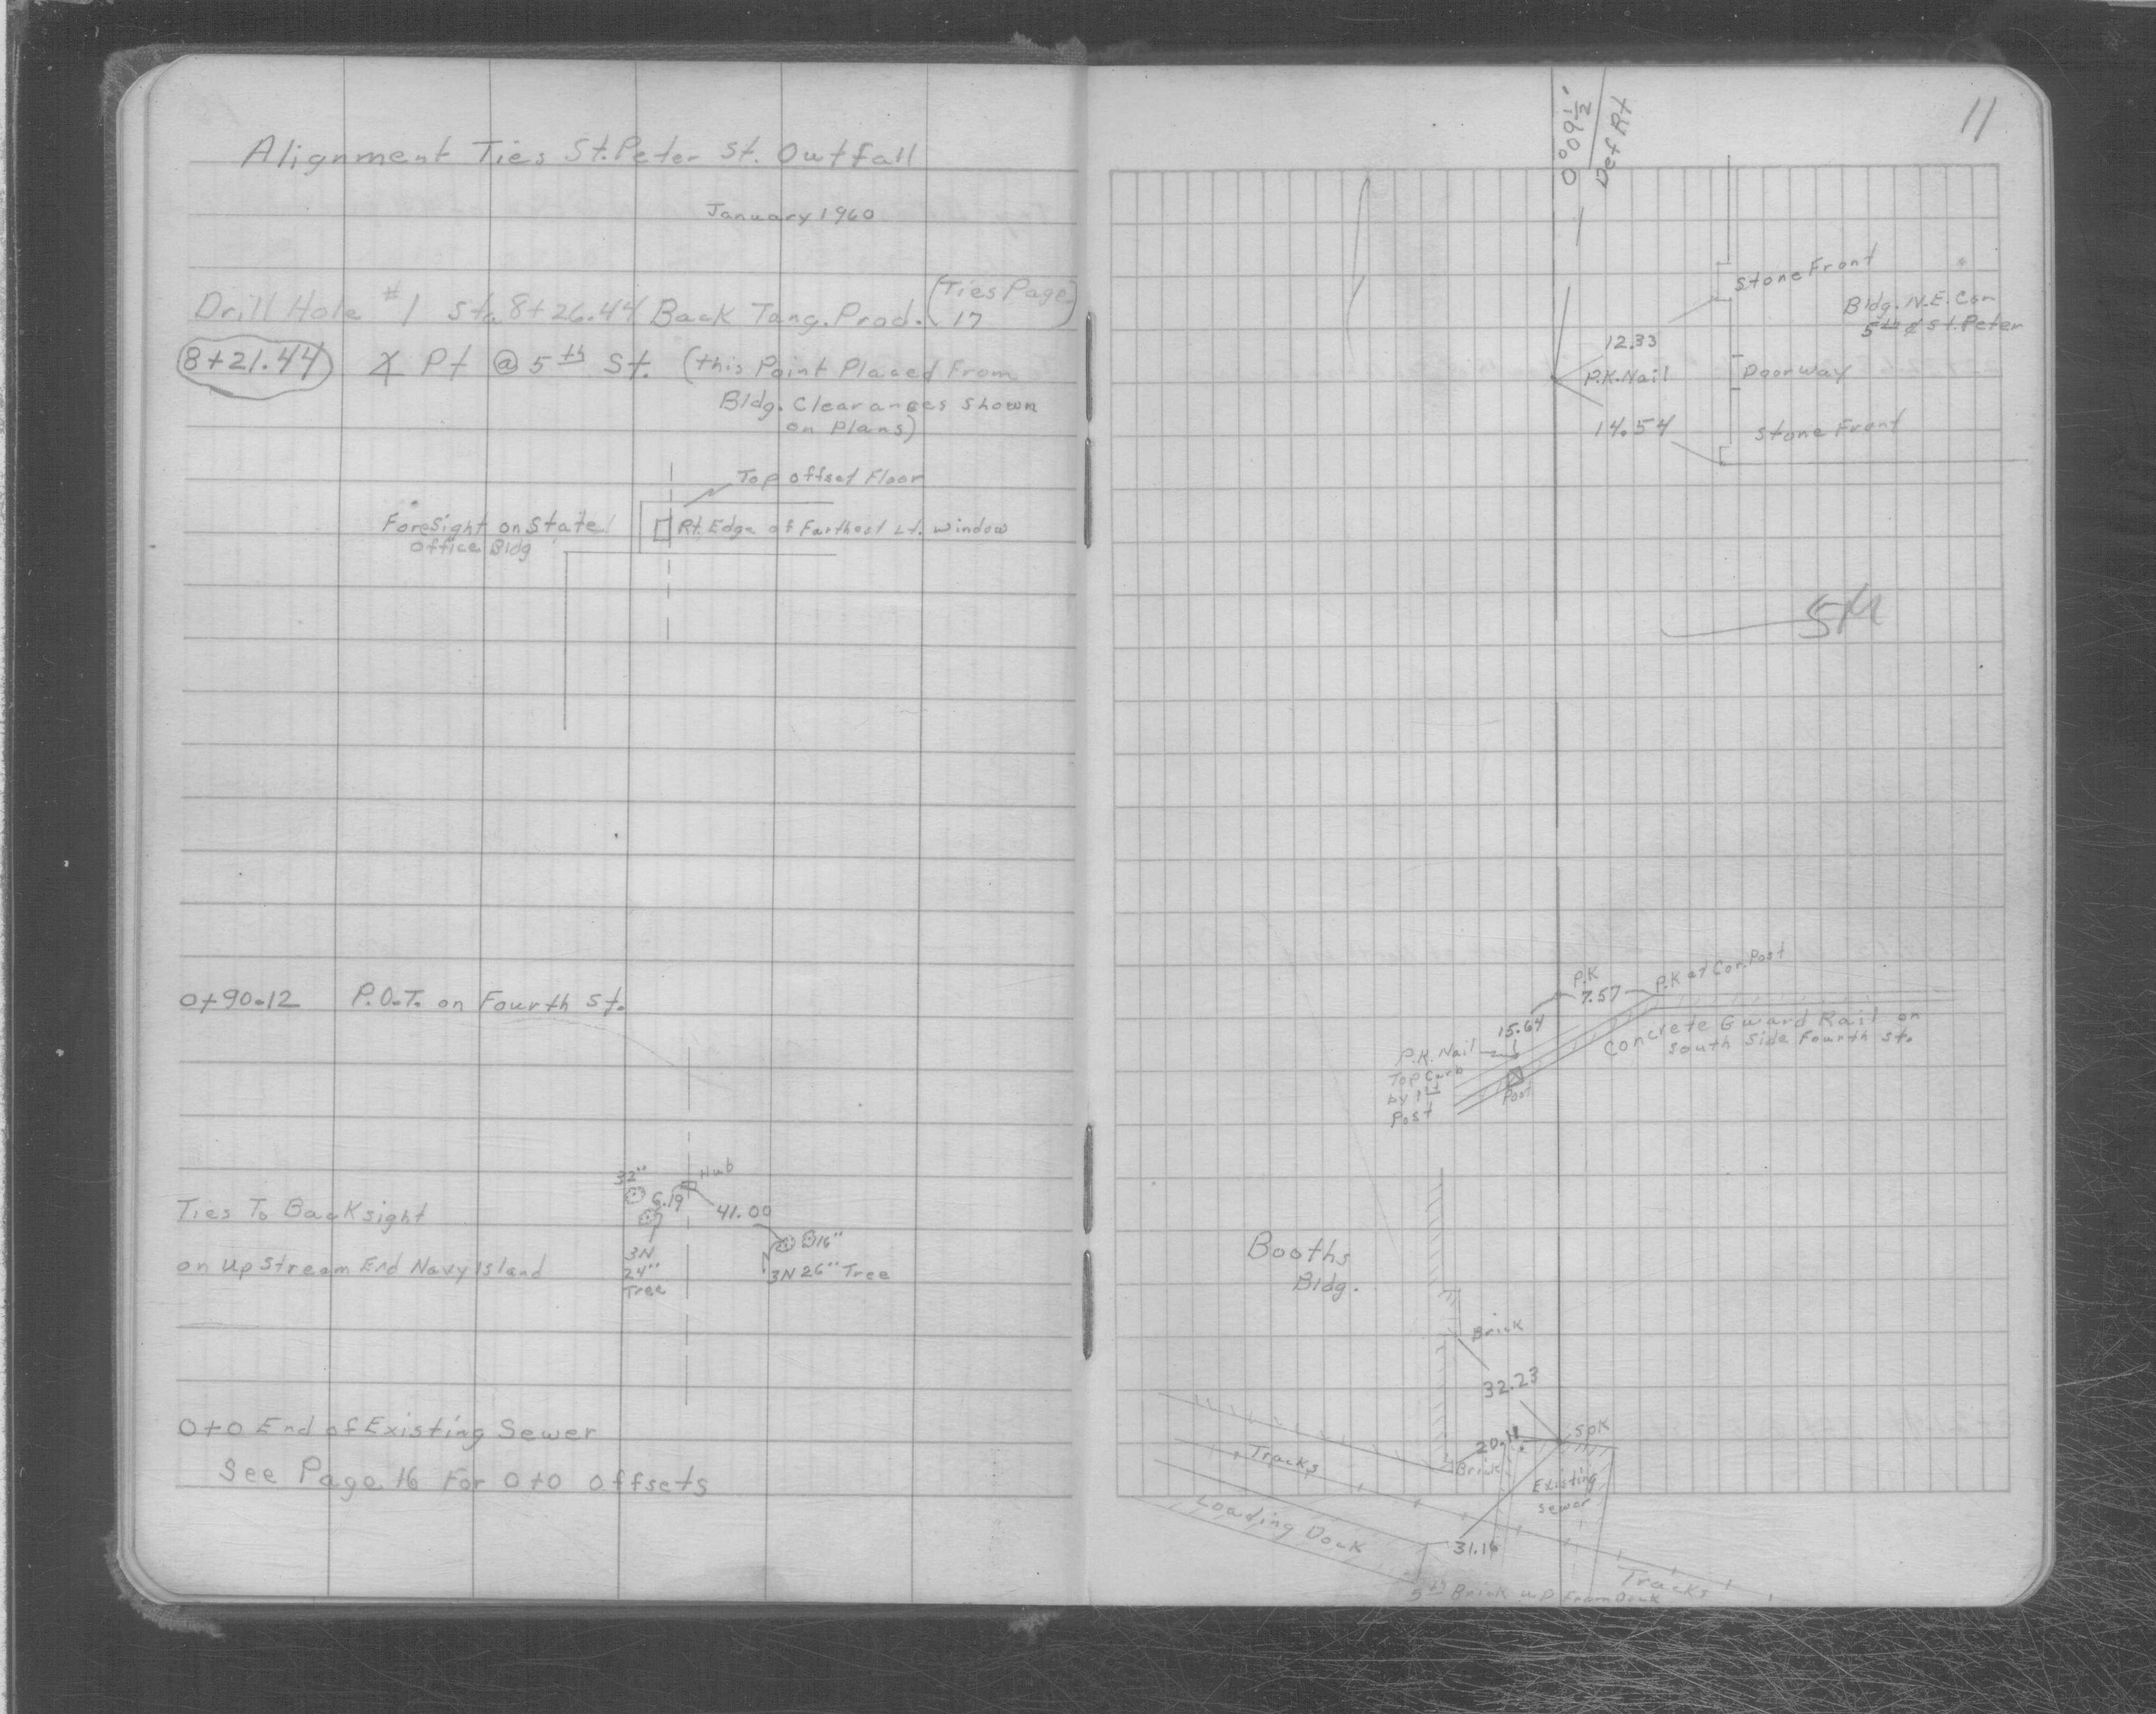 Alignment Ties St. Peter St. Outfall
January 1960
Drill Hole #1 Sta 8+26.44 Back Tang. Prod. (Ties Page 17)
8+21.44 ∠ Pt @ 5th St. (this Point Placed From
Bldg. Clearances Shown
on Plans)
Top Offset Floor
Foresight on State
Office Bldg
Rt. Edge of Farthest Lt. window
0+90.12 P.O.T. on Fourth St.
32"
Hub
6.19
41.00
Ties To Backsight
16"
3N
24"
Tree
3N 26" Tree
on Upstream End Navy Island
0+0 End of Existing Sewer
See Page 16 For 0+0 offsets
11
0°09 1/2'
Def Rt
Stone Front
Bldg. N.E. Cor
5th & St. Peter
12.33
P.K. Nail
Doorway
14.54
Stone Front
P.K
7.57
P.K at Cor. Post
15.64
Concrete Guard Rail on
South Side Fourth St.
P.K. Nail
Top Curb
by 1st
Post
Post
Booths
Bldg.
Brick
32.23
Spk
20.11
Brick
Tracks
Existing
Sewer
Loading Dock
31.16
Tracks
5th Brick up From Dock